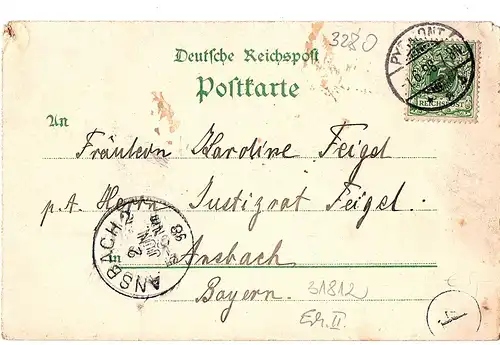 3280
Deutsche Reichspost
Postkarte
PYRMONT
REICHSPOST
An
Fräulein Karoline Feigel
p. A. Herrn Justizrat Feigel.
in Ansbach
Bayern.
ANSBACH 2
JUN
98
31812